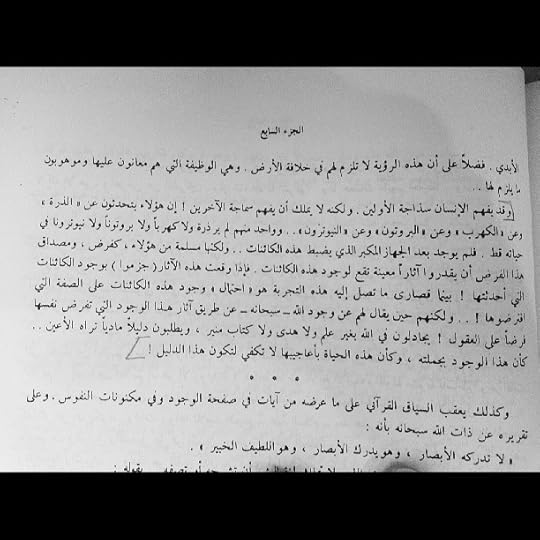 الجزء السابع
الأبدي . فضلاً على أن هذه الرؤية لا تلزم لهم في خلافة الأرض . وهي الوظيفة التي هم معانون عليها وموهوبون
ما يلزم لها ..
وقد يفهم الإنسان سذاجة الأولين . ولكنه لا يملك أن يفهم سماجة الآخرين ! إن هؤلاء يتحدثون عن « الذرة »
وعن « الكهرب » وعن « البروتون » وعن « النيوترون » .. وواحد منهم لم ير ذرة ولا كهرباً ولا بروتوناً ولا نيوترونا في
حياته قط . فلم يوجد بعد الجهاز المكبر الذي يضبط هذه الكائنات .. ولكنها مسلمة من هؤلاء ، كفرض ، ومصداق
هذا الفرض أن يقدروا آثاراً معينة تقع لوجود هذه الكائنات . فإذا وقعت هذه الآثار ( جزموا ) بوجود الكائنات
التي أحدثتها ! بينما قصارى ما تصل إليه هذه التجربة هو « احتمال » وجود هذه الكائنات على الصفة التي
افترضوها ! .. ولكنهم حين يقال لهم عن وجود الله ـ سبحانه ـ عن طريق آثار هذا الوجود التي تفرض نفسها
فرضاً على العقول ! يجادلون في الله بغير علم ولا هدى ولا كتاب منير ، ويطلبون دليلاً مادياً تراه الأعين ..
كأن هذا الوجود بجملته ، وكأن هذه الحياة بأعاجيبها لا تكفي لتكون هذا الدليل !
* * *
وكذلك يعقب السياق القرآني على ما عرضه من آيات في صفحة الوجود وفي مكنونات النفوس . وعلى
تقريره عن ذات الله سبحانه بأنه :
« لا تدركه الأبصار ، وهو يدرك الأبصار ، وهو اللطيف الخبير » .